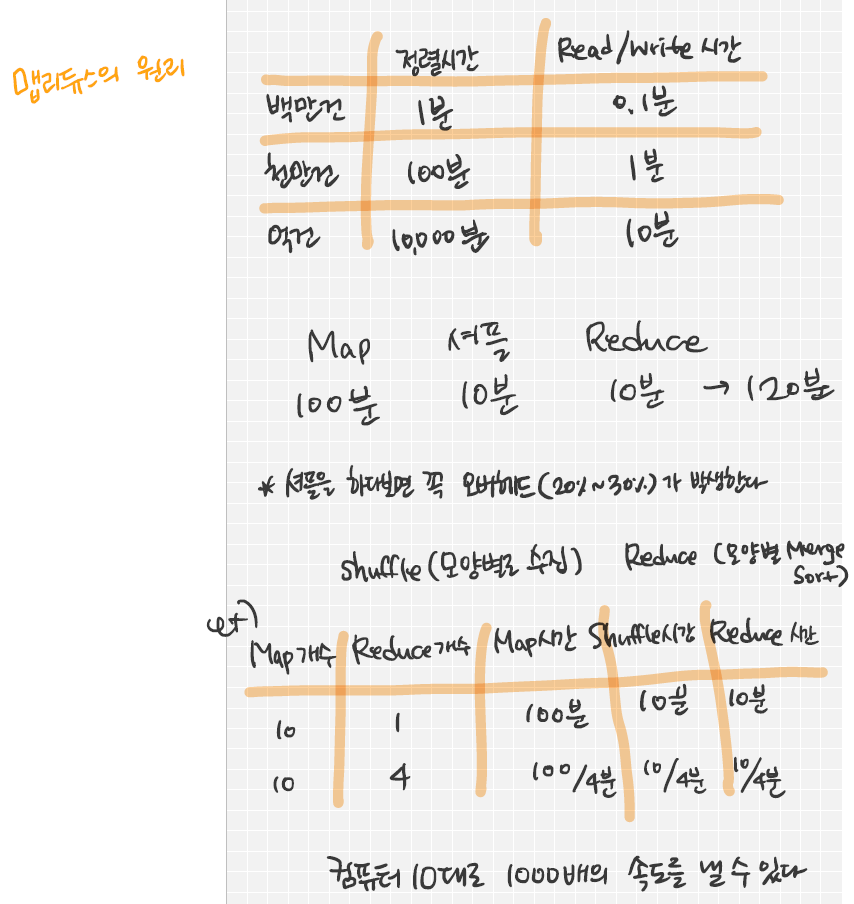 맵리듀스의 원리
정렬시간 Read/Write 시간
백만건 1분 0.1분
천만건 100분 1분
억건 10,000분 10분
Map 셔플 Reduce
100분 10분 10분 → 120분
* 셔플을 하다보면 꼭 오버헤드(20%~30%)가 발생한다
shuffle(모양별로 수집) Reduce (모양별 Merge
Sort)
Map개수 Reduce개수 Map시간 Shuffle시간 Reduce 시간
10 1 100분 10분 10분
10 4 100/4분 10/4분 10/4분
컴퓨터 10대로 1000배의 속도를 낼 수 있다